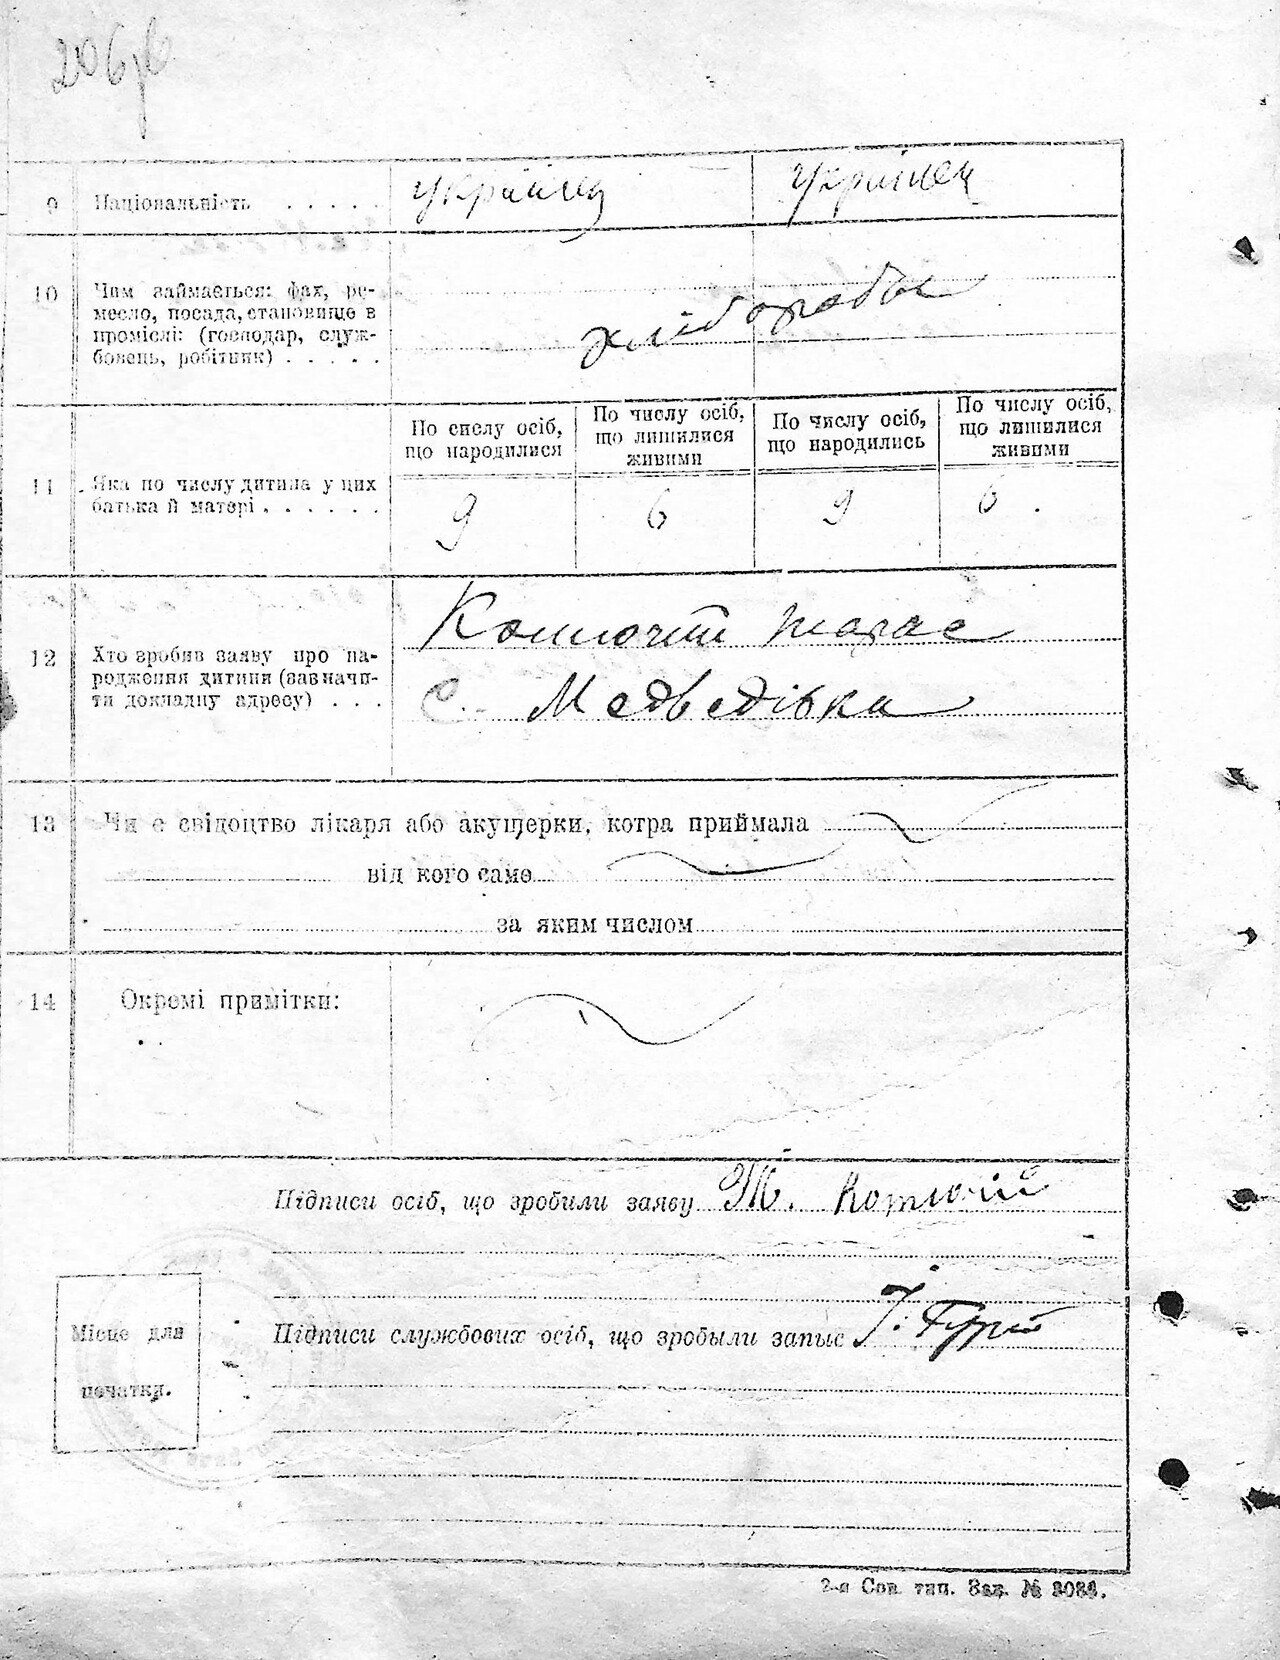 206
9 Національність . . . . . українец українец
10 Чим займається: фах, ре-
месло, посада, становище в
промислі: (господар, служ-
бовець, робітник) . . . . .
хлібороби
По сислу осіб,
що народилися
По числу осіб,
що лишилися
живими
По числу осіб,
що народились
По числу осіб,
що лишилися
живими
11 Яка по числу дитина у цих
батька й матері . . . . . .
9 6 9 6
12 Хто зробив заяву про на-
родження дитини (зазначи-
ти докладну адресу) . . .
Котлючий Тарас
с. Медведівка
13 Чи є свідоцтво лікаря або акушерки, котра приймала
від кого саме
за яким числом
14 Окремі примітки:
Підписи осіб, що зробили заяву Т. Котлючий
Підписи службових осіб, що зробыли запыс
Місце для
початки.
2-я Сов. тип. Зак. №